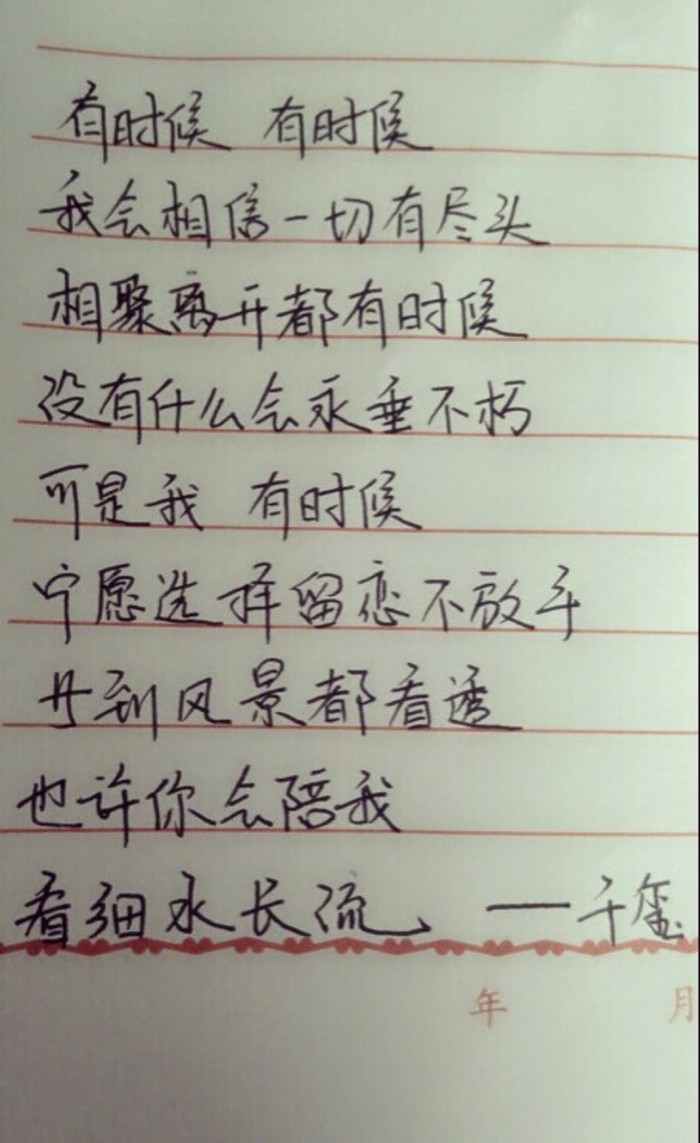 有时候 有时候
我会相信一切有尽头
相聚离开都有时候
没有什么会永垂不朽
可是我 有时候
宁愿选择留恋不放手
等到风景都看透
也许你会陪我
看细水长流 —— 千玺
年 月